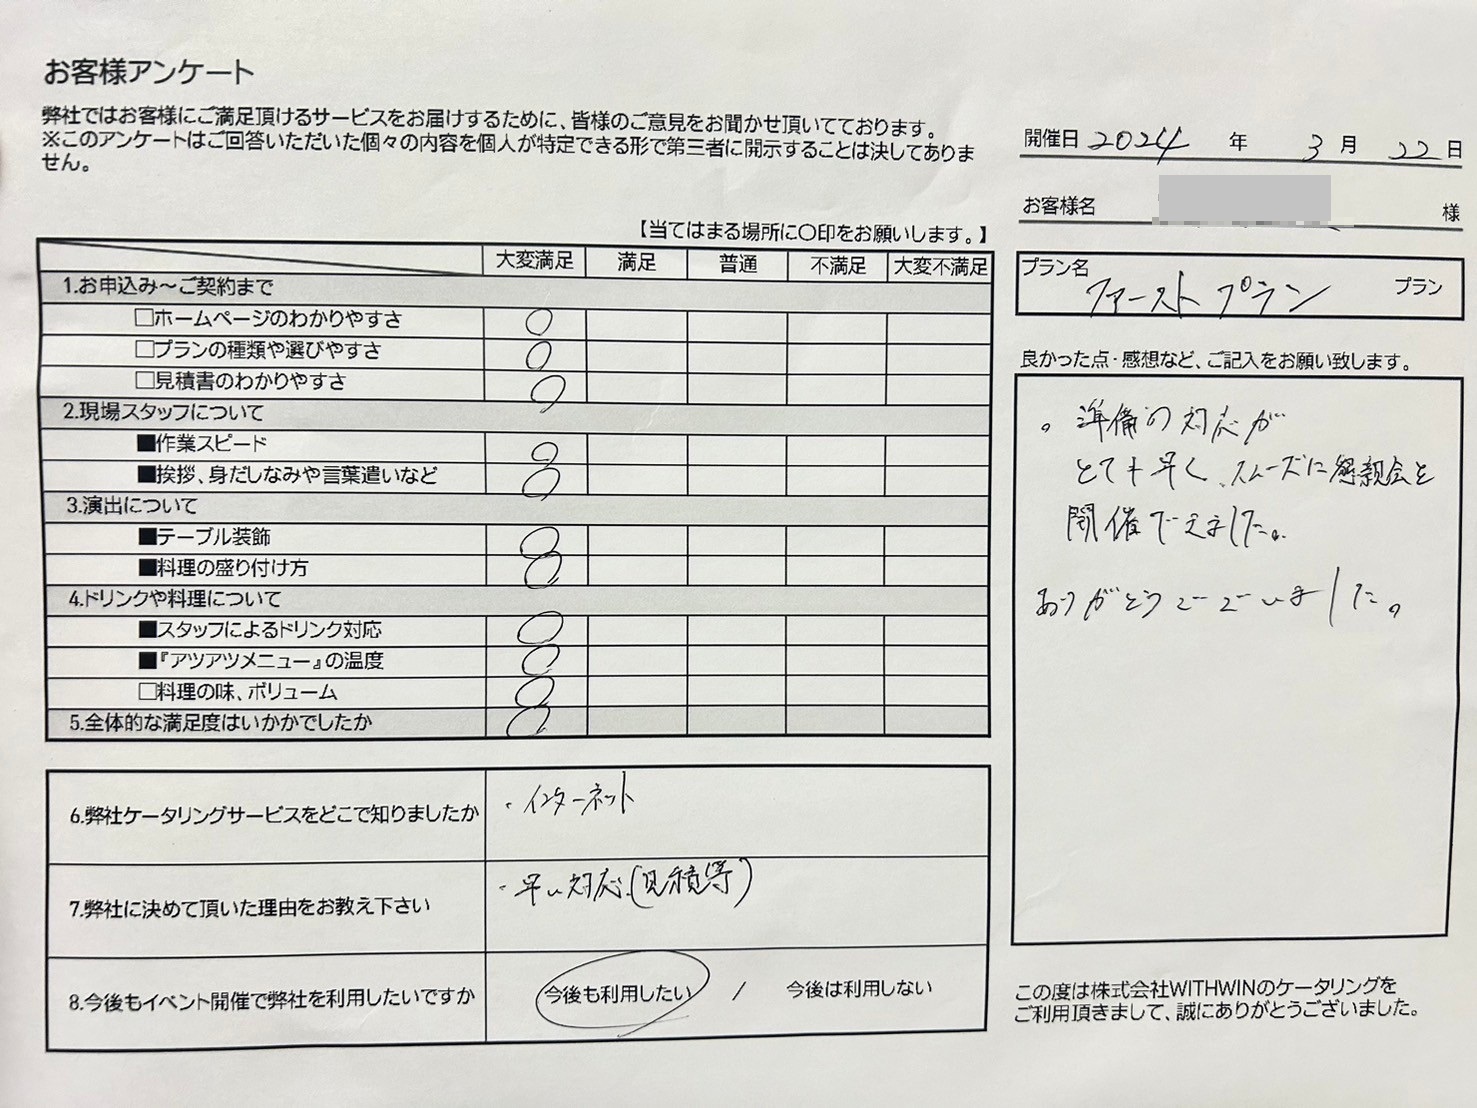 お客様アンケート
弊社ではお客様にご満足頂けるサービスをお届けするために、皆様のご意見をお聞かせ頂いてております。
※このアンケートはご回答いただいた個々の内容を個人が特定できる形で第三者に開示することは決してありま
せん。
開催日 2024 年 3 月 22 日
お客様名 様
プラン名
ファーストプラン プラン
【当てはまる場所に〇印をお願いします。】
大変満足 満足 普通 不満足 大変不満足
1.お申込み～ご契約まで
□ホームページのわかりやすさ ○
□プランの種類や選びやすさ ○
□見積書のわかりやすさ ○
2.現場スタッフについて
■作業スピード ○
■挨拶、身だしなみや言葉遣いなど ○
3.演出について
■テーブル装飾 ○
■料理の盛り付け方 ○
4.ドリンクや料理について
■スタッフによるドリンク対応 ○
■『アツアツメニュー』の温度 ○
□料理の味、ボリューム ○
5.全体的な満足度はいかかでしたか ○
6.弊社ケータリングサービスをどこで知りましたか ・インターネット
7.弊社に決めて頂いた理由をお教え下さい ・早い対応(見積等)
8.今後もイベント開催で弊社を利用したいですか 今後も利用したい / 今後は利用しない
良かった点・感想など、ご記入をお願い致します。
。準備の対応が
とても早く、スムーズに懇親会を
開催できました。
ありがとうございました。
この度は株式会社WITHWINのケータリングを
ご利用頂きまして、誠にありがとうございました。